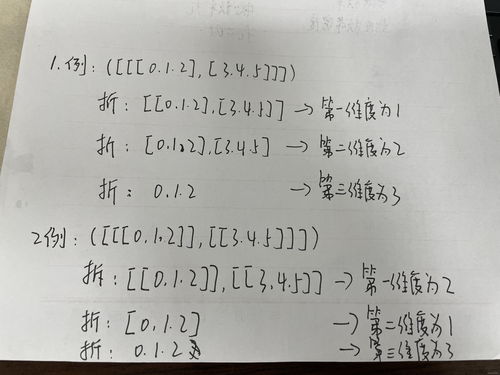 1.例：([[[0.1.2],[3.4.5]]])
折：[[0.1.2],[3.4.5]] → 第一维度为1
折：[0.1.2],[3.4.5] → 第二维度为2
折：0.1.2 → 第三维度为3
2例：([[[0.1.2]],[[3.4.5]]])
拆：[[0.1.2]],[[3.4.5]] → 第一维度为2
折：[0.1.2] → 第二维度为1
折：0.1.2 → 第三维度为3